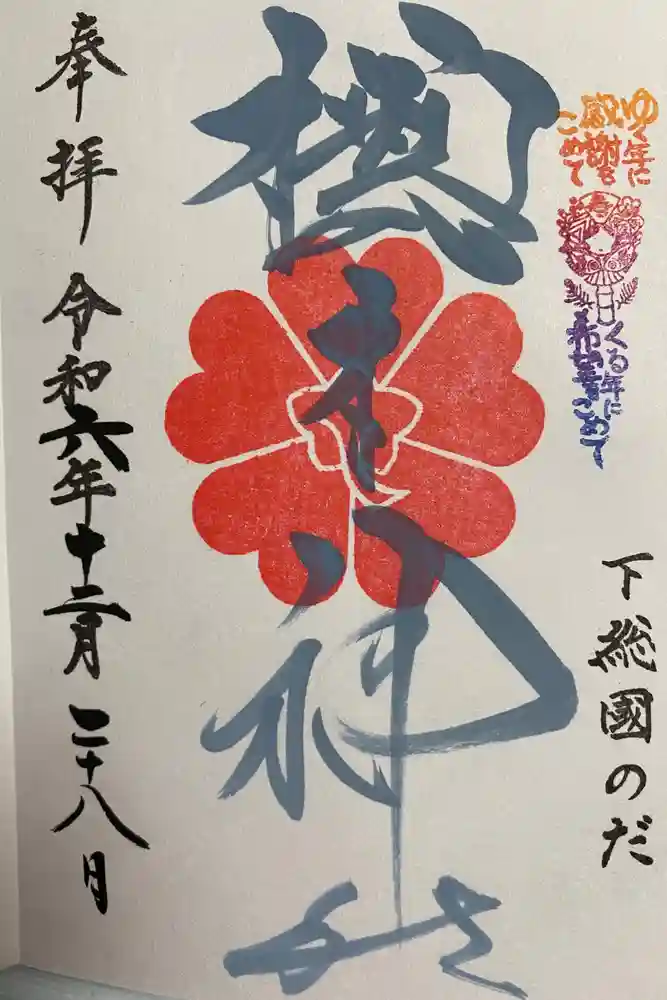 ゆく年に
感謝を
こめて
くる年に
希望をこめて
下総國のだ
櫻木神社
奉拝 令和六年十二月二十八日